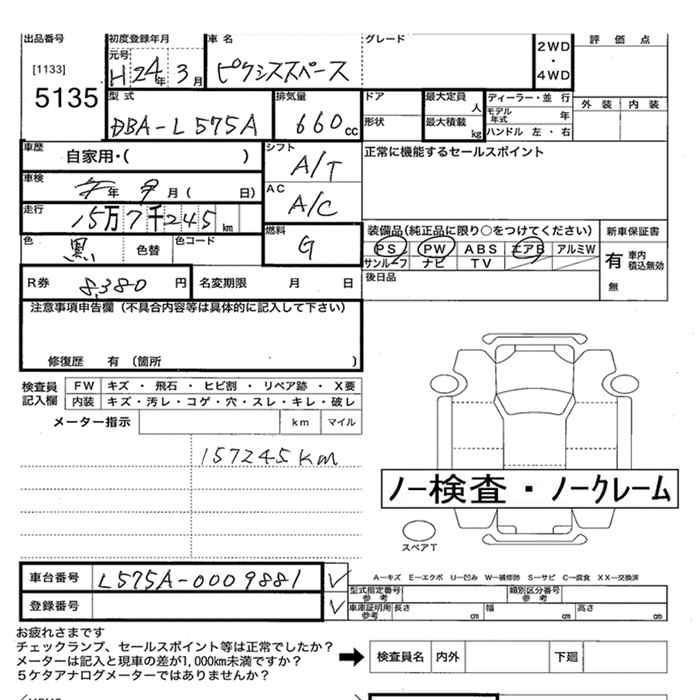 出品番号
[1133]
5135
初度登録年月
元号
H24年3月
車名
ピクシススペース
グレード
2WD
・
4WD
評価点
外装 内装
型式
DBA-L575A
排気量
660cc
ドア
形状
最大定員 人
最大積載 kg
ディーラー・並行
モデル年式 年
ハンドル 左・右
車歴
自家用・( )
シフト
A/T
正常に機能するセールスポイント
車検
年 月 ( 日)
AC
A/C
走行
15万7千245km
色
黒
色替
色コード
燃料
G
装備品(純正品に限り○をつけてください)
PS PW ABS エアB アルミW
サンルーフ ナビ TV
後日品
新車保証書
有 車内積込無効
無
R券
8,380円
名変期限 月 日
注意事項申告欄(不具合内容等は具体的に記入して下さい)
修復歴 有 (箇所 )
検査員記入欄
FW キズ・飛石・ヒビ割・リペア跡・X要
内装 キズ・汚レ・コゲ・穴・スレ・キレ・破レ
メーター指示 km マイル
157245km
ノー検査・ノークレーム
スペアT
車台番号 L575A-0009881
登録番号
A-キズ E-エクボ U-凹み W-補修跡 S-サビ C-腐食 XX-交換済
型式指定番号 参考 類別区分番号 参考
車庫証明用 参考 長さ cm 幅 cm 高さ cm
お疲れさまです
チェックランプ、セールスポイント等は正常でしたか?
メーターは記入と現車の差が1,000km未満ですか?
5ケタアナログメーターではありませんか?
検査員名 内外 下廻